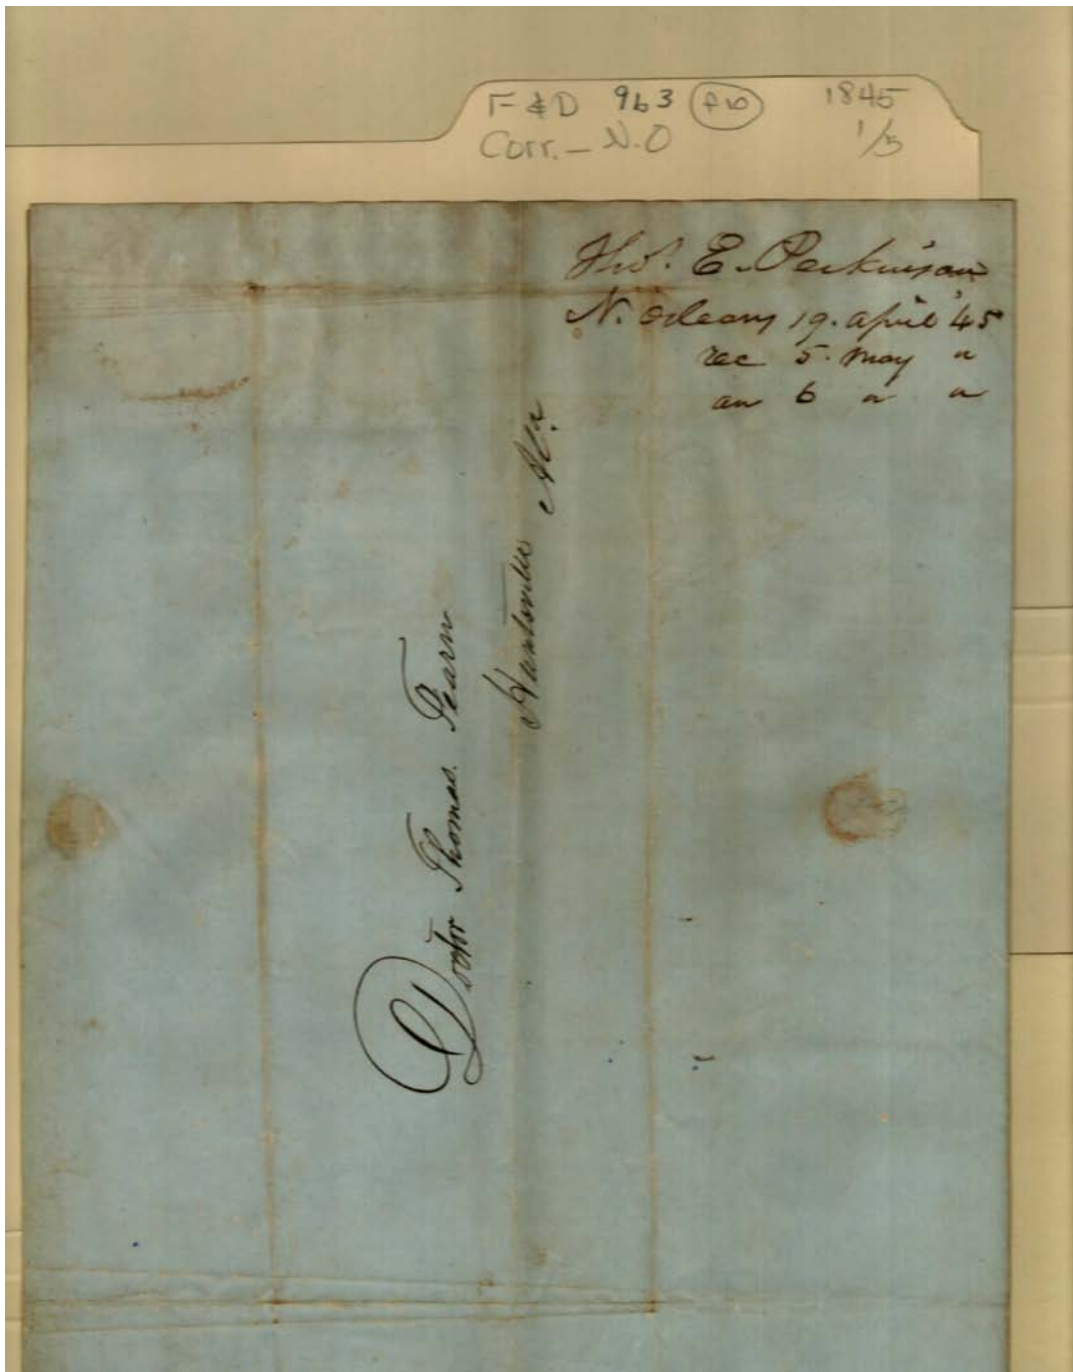 F & D 963 1845
Corr. – N.O 1/5
Tho.s E. Perkinson
N. Orleans 19. april '45
rec 5. May "
an 6 " "
Doctor Thomas. Fearn
Huntsville Ala